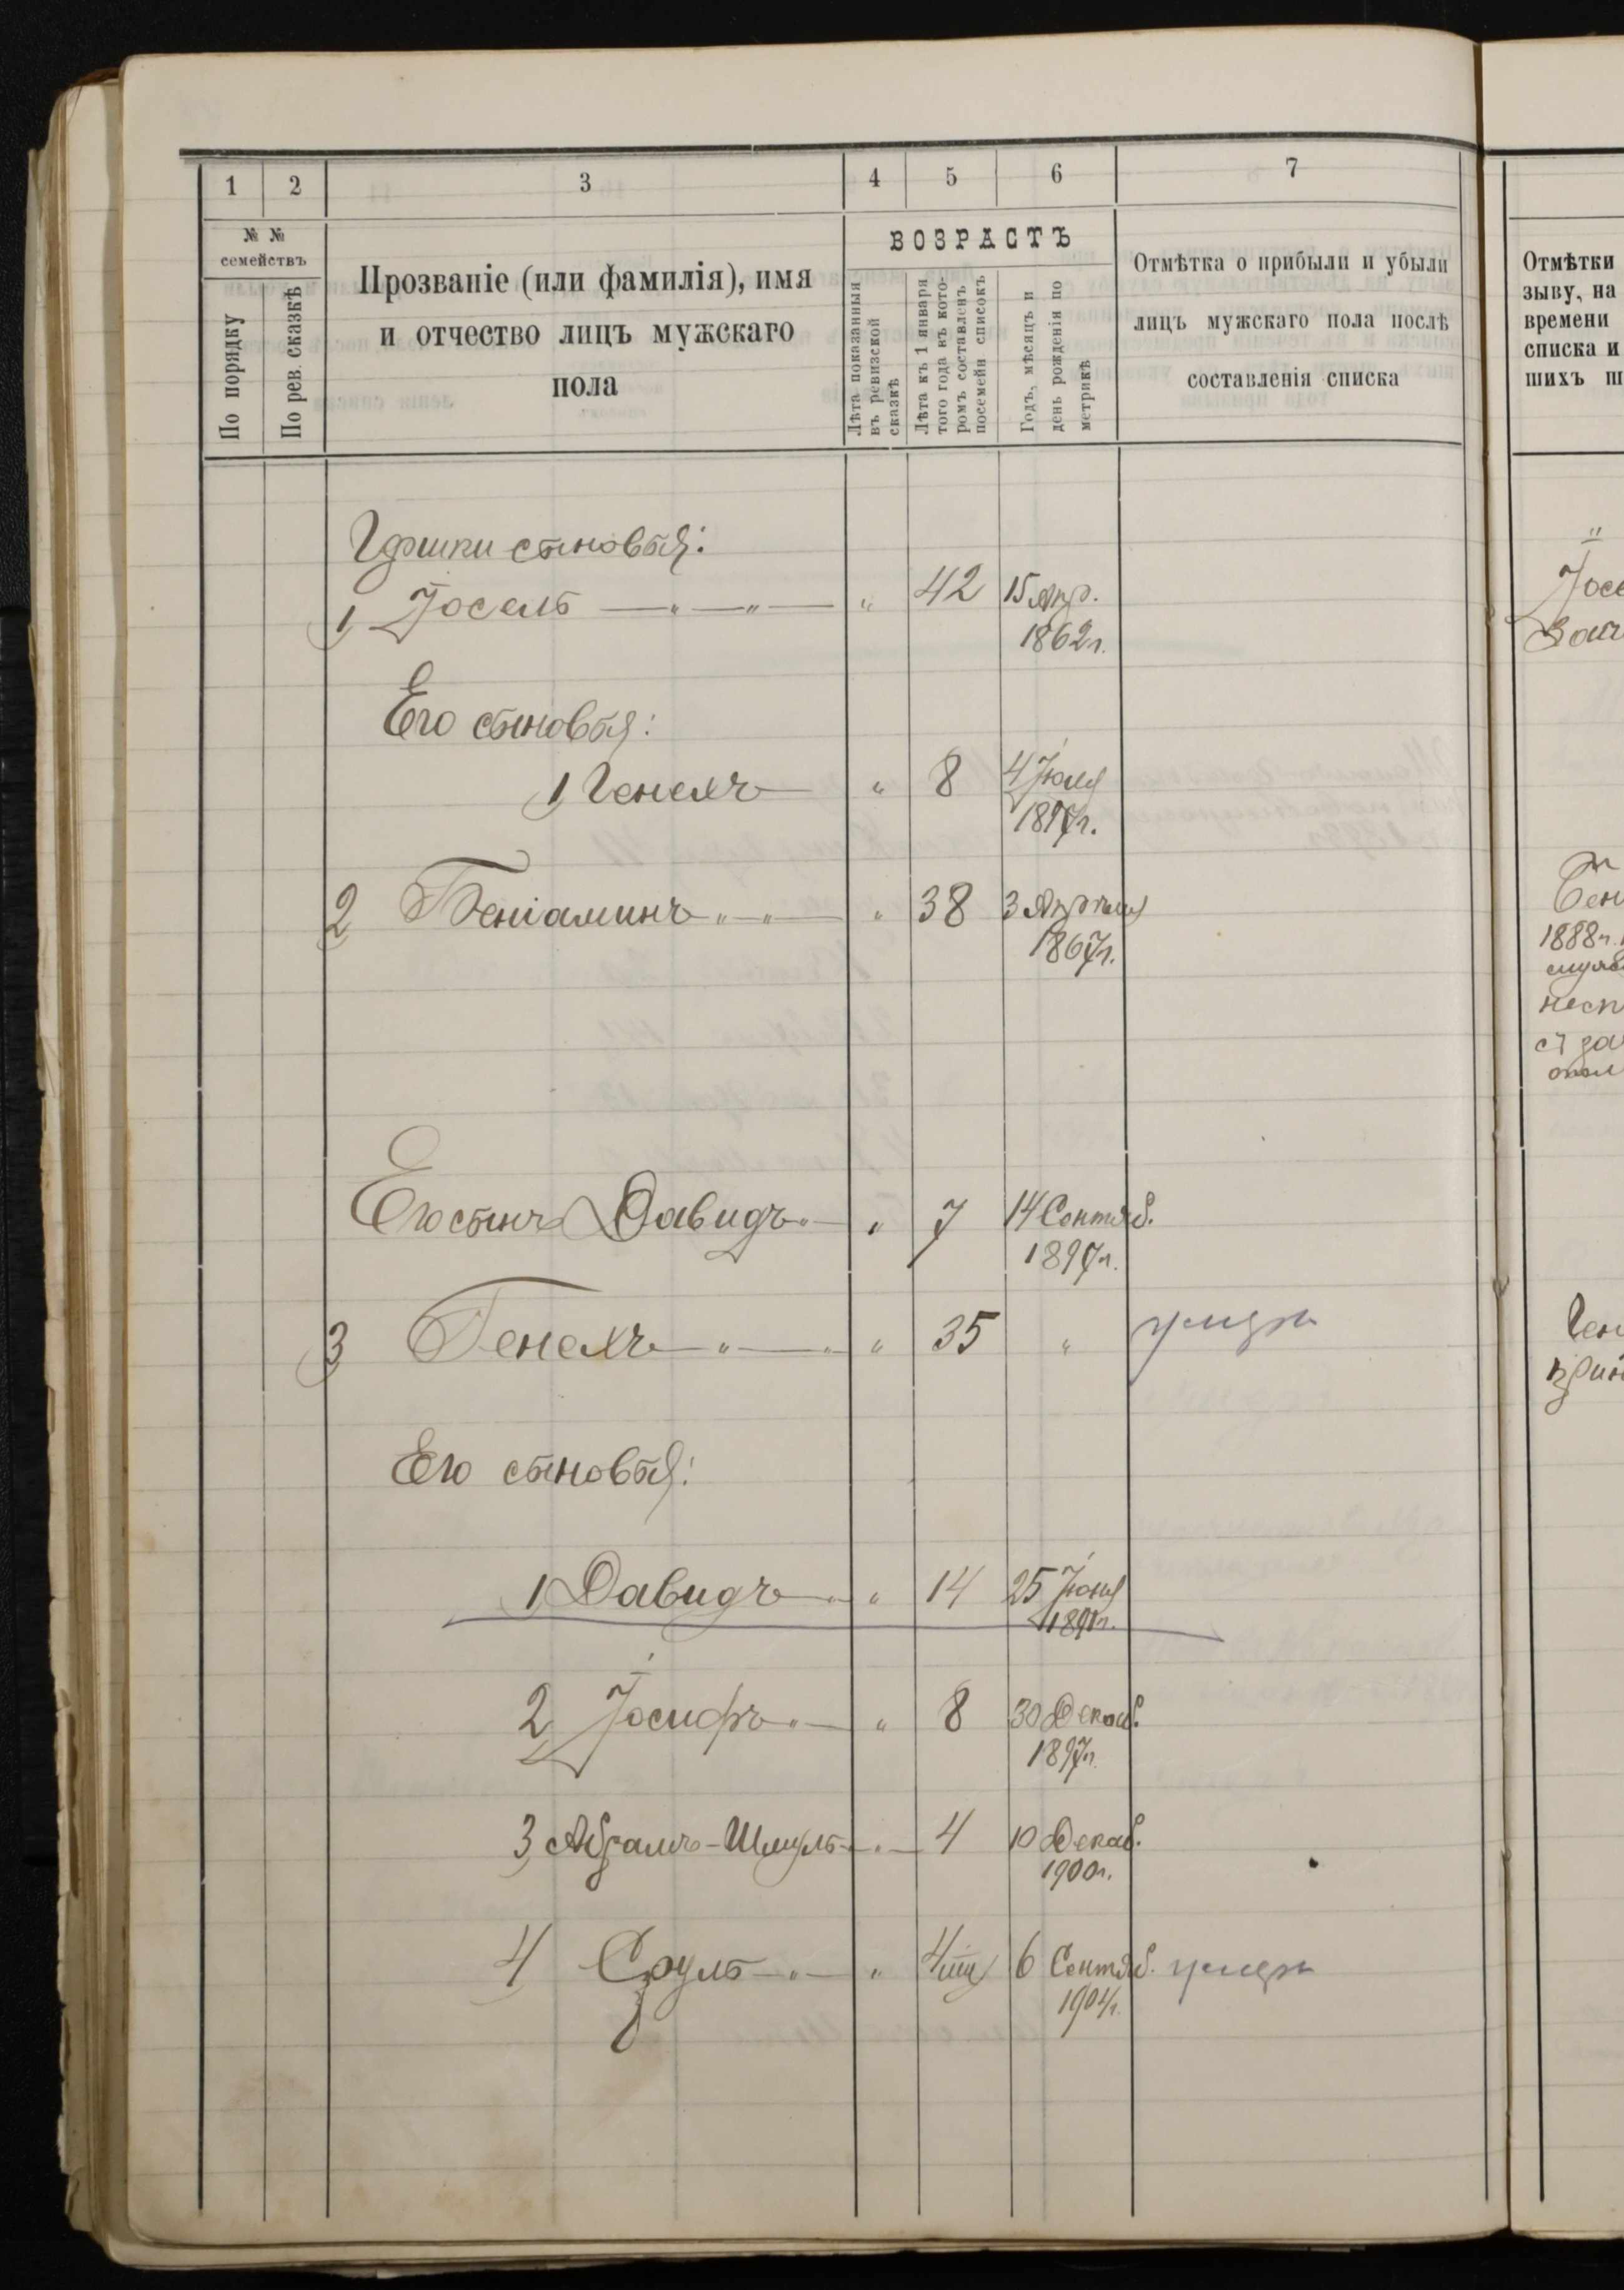 1 2 3 4 5 6 7
№ №
семействъ
По порядку
По рев. сказкѣ
Прозваніе (или фамилія), имя
и отчество лицъ мужскаго
пола
ВОЗРАСТЪ
Лѣта показанныя
въ ревизской
сказкѣ
Лѣта къ 1 января
того года въ кото-
ромъ составленъ
посемейн списокъ
Годъ, мѣсяцъ и
день рожденія по
метрикѣ
Отмѣтка о прибыли и убыли
лицъ мужскаго пола послѣ
составленія списка
Отмѣтки
зыву, на
времени
списка и
шихъ
Иршки сыновья:
1) Іосель — " — " — " 42 15 Апр.
1862 г.
Его сыновья:
1) Генехъ — " 8 4 Іюля
1897 г.
2) Беніаминъ " — " — " 38 3 Апрѣля
1867 г.
Его сынъ Давидъ " — " 7 14 Сентяб.
1897 г.
3) Генехъ — " — " " 35 " умеръ
Его сыновья:
1) Давидъ — " " 14 25 Іюня
1891 г.
2) Іосифъ " — " 8 30 Декаб.
1897 г.
3) Абрамъ-Шмуль — " — 4 10 Декаб.
1900 г.
4) Сруль — " — " 4 м 6 Сентяб. умеръ
1904 г.
"
Іосе
Бен
1888 г.
служб
Ген